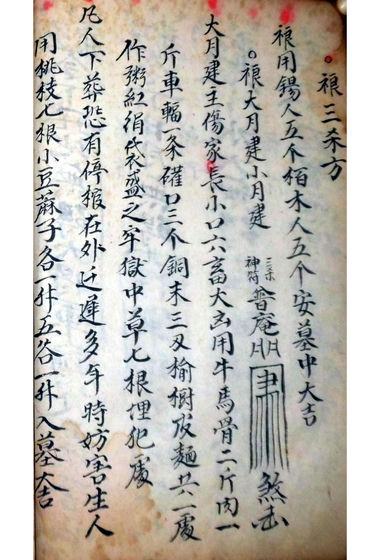 。禳三杀方
禳用锡人五个栢木人五个安墓中大吉
。禳大月建小月建 三杀神符 普庵 煞
大月建主傷家長小口六畜大凶用牛馬骨二斤肉一
斤車輻一条碓口三个銅末三又榆樹皮麵共一處
作粥紅绢袋盛之牢獄中草七根埋犯處
凡人下葬恐有停棺在外迁遲多年時妨害生人
用桃枝七根小豆蔴子各一升五谷一升入墓大吉